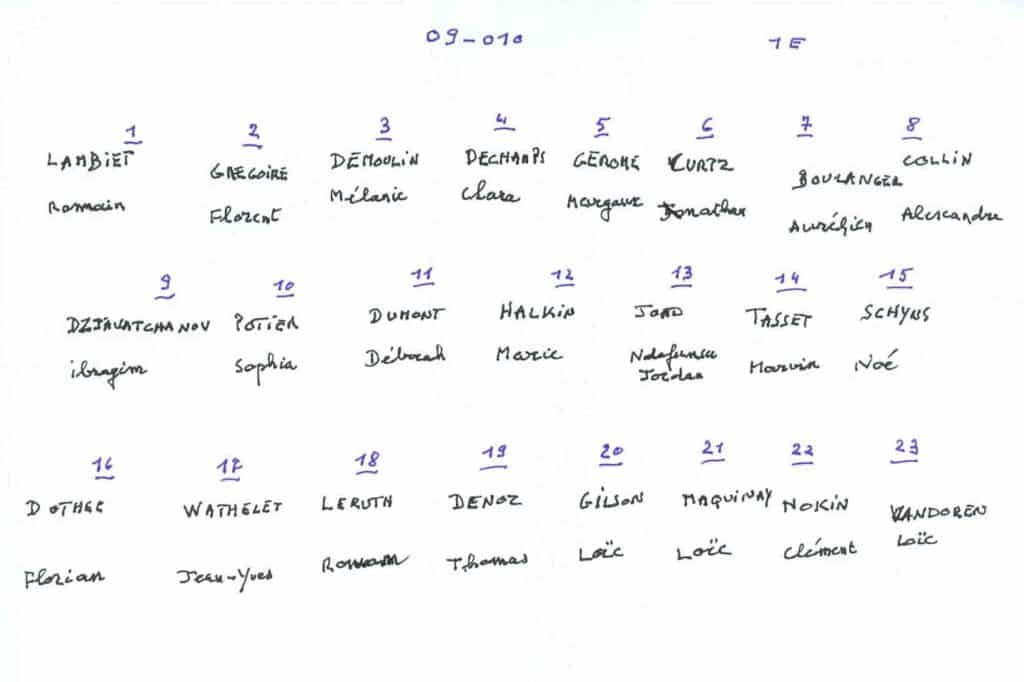 09-010 1E
1 2 3 4 5 6 7 8
LAMBIET GREGOIRE DEMOULIN DECHAMPS GEROME KURTZ BOULANGER COLLIN
Romain Florent Mélanie Clara Margaux Jonathan Aurélien Alexandre
9 10 11 12 13 14 15
DZJAVATCHANOV POTIER DUMONT HALKIN JOAO TASSET SCHYNS
ibragim Sophia Déborah Marie Ndofunsu Marvin Noé
Jordan
16 17 18 19 20 21 22 23
DOTHEE WATHELET LERUTH DENOZ GILSON MAQUINAY NOKIN VANDOREN
Florian Jean-Yves Romain Thomas Loïc Loïc Clément Loïc